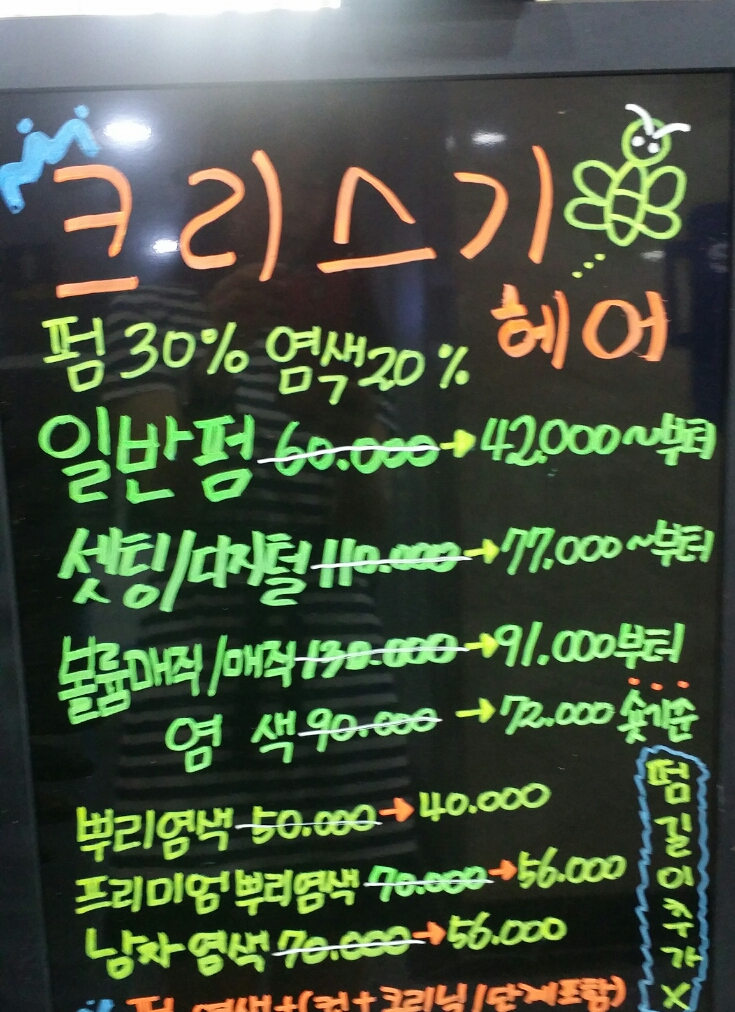 크리스기
헤어
펌 30% 염색 20%
일반펌 60.000 → 42.000~부터
셋팅/디지털 110.000 → 77.000~부터
볼륨매직/매직 130.000 → 91.000부터
염 색 90.000 → 72.000 숏기준
뿌리염색 50.000 → 40.000
프리미엄 뿌리염색 70.000 → 56.000
남자염색 70.000 → 56.000
펌길이추가X
펌 염색+(컷+크리닉/단계포함)